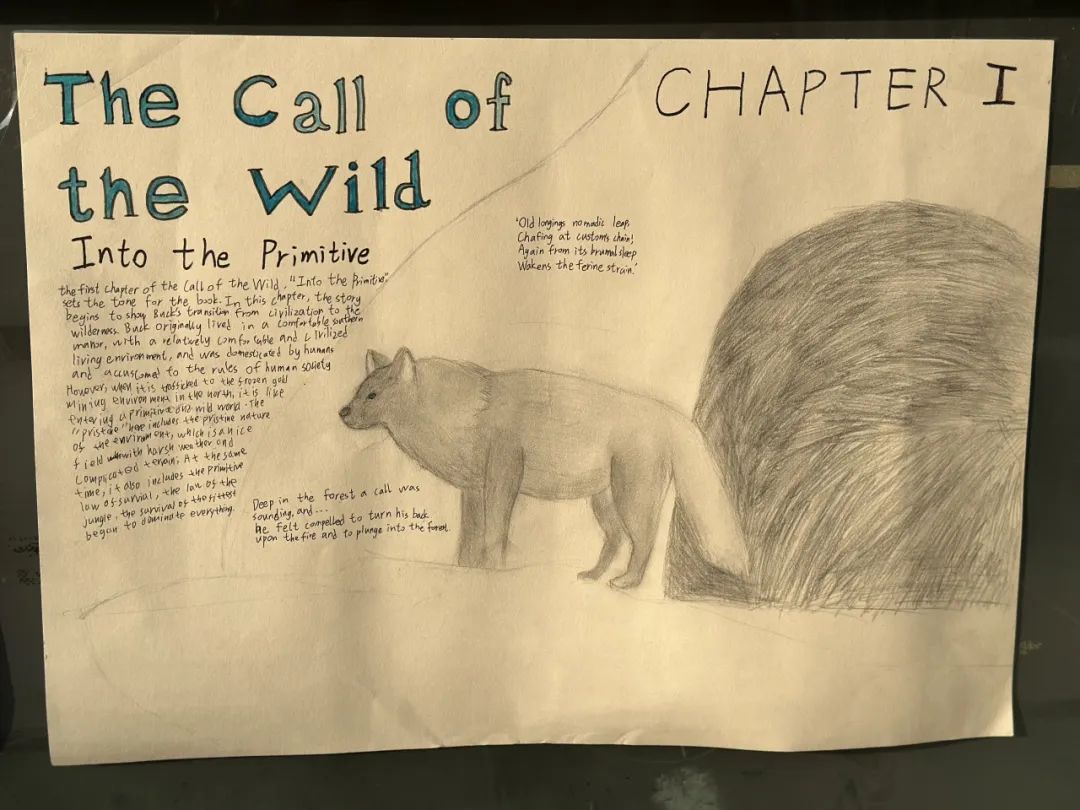 The Call of
the Wild
CHAPTER I
Into the Primitive
the first chapter of the Call of the Wild, "Into the Primitive"
sets the tone for the book. In this chapter, the story
begins to show Buck's transition from civilization to the
wilderness. Buck originally lived in a comfortable southern
manor, with a relatively comfortable and civilized
living environment, and was domesticated by humans
and accustomed to the rules of human society
However, when it is trafficked to the frozen gold
mining environment in the north, it is like
entering a primitive and wild world. The
"pristine" here includes the pristine nature
of the environment, which is an ice
field with harsh weather and
complicated terrain; At the same
time, it also includes the primitive
law of survial, the law of the
jungle, the survival of the fittest
began to dominate everything.
'Old longings nomadic leap,
Chafing at customs chain;
Again from its brumal sleep
Wakens the ferine strain.'
Deep in the forest a call was
sounding, and...
He felt compelled to turn his back
upon the fire and to plunge into the forest.